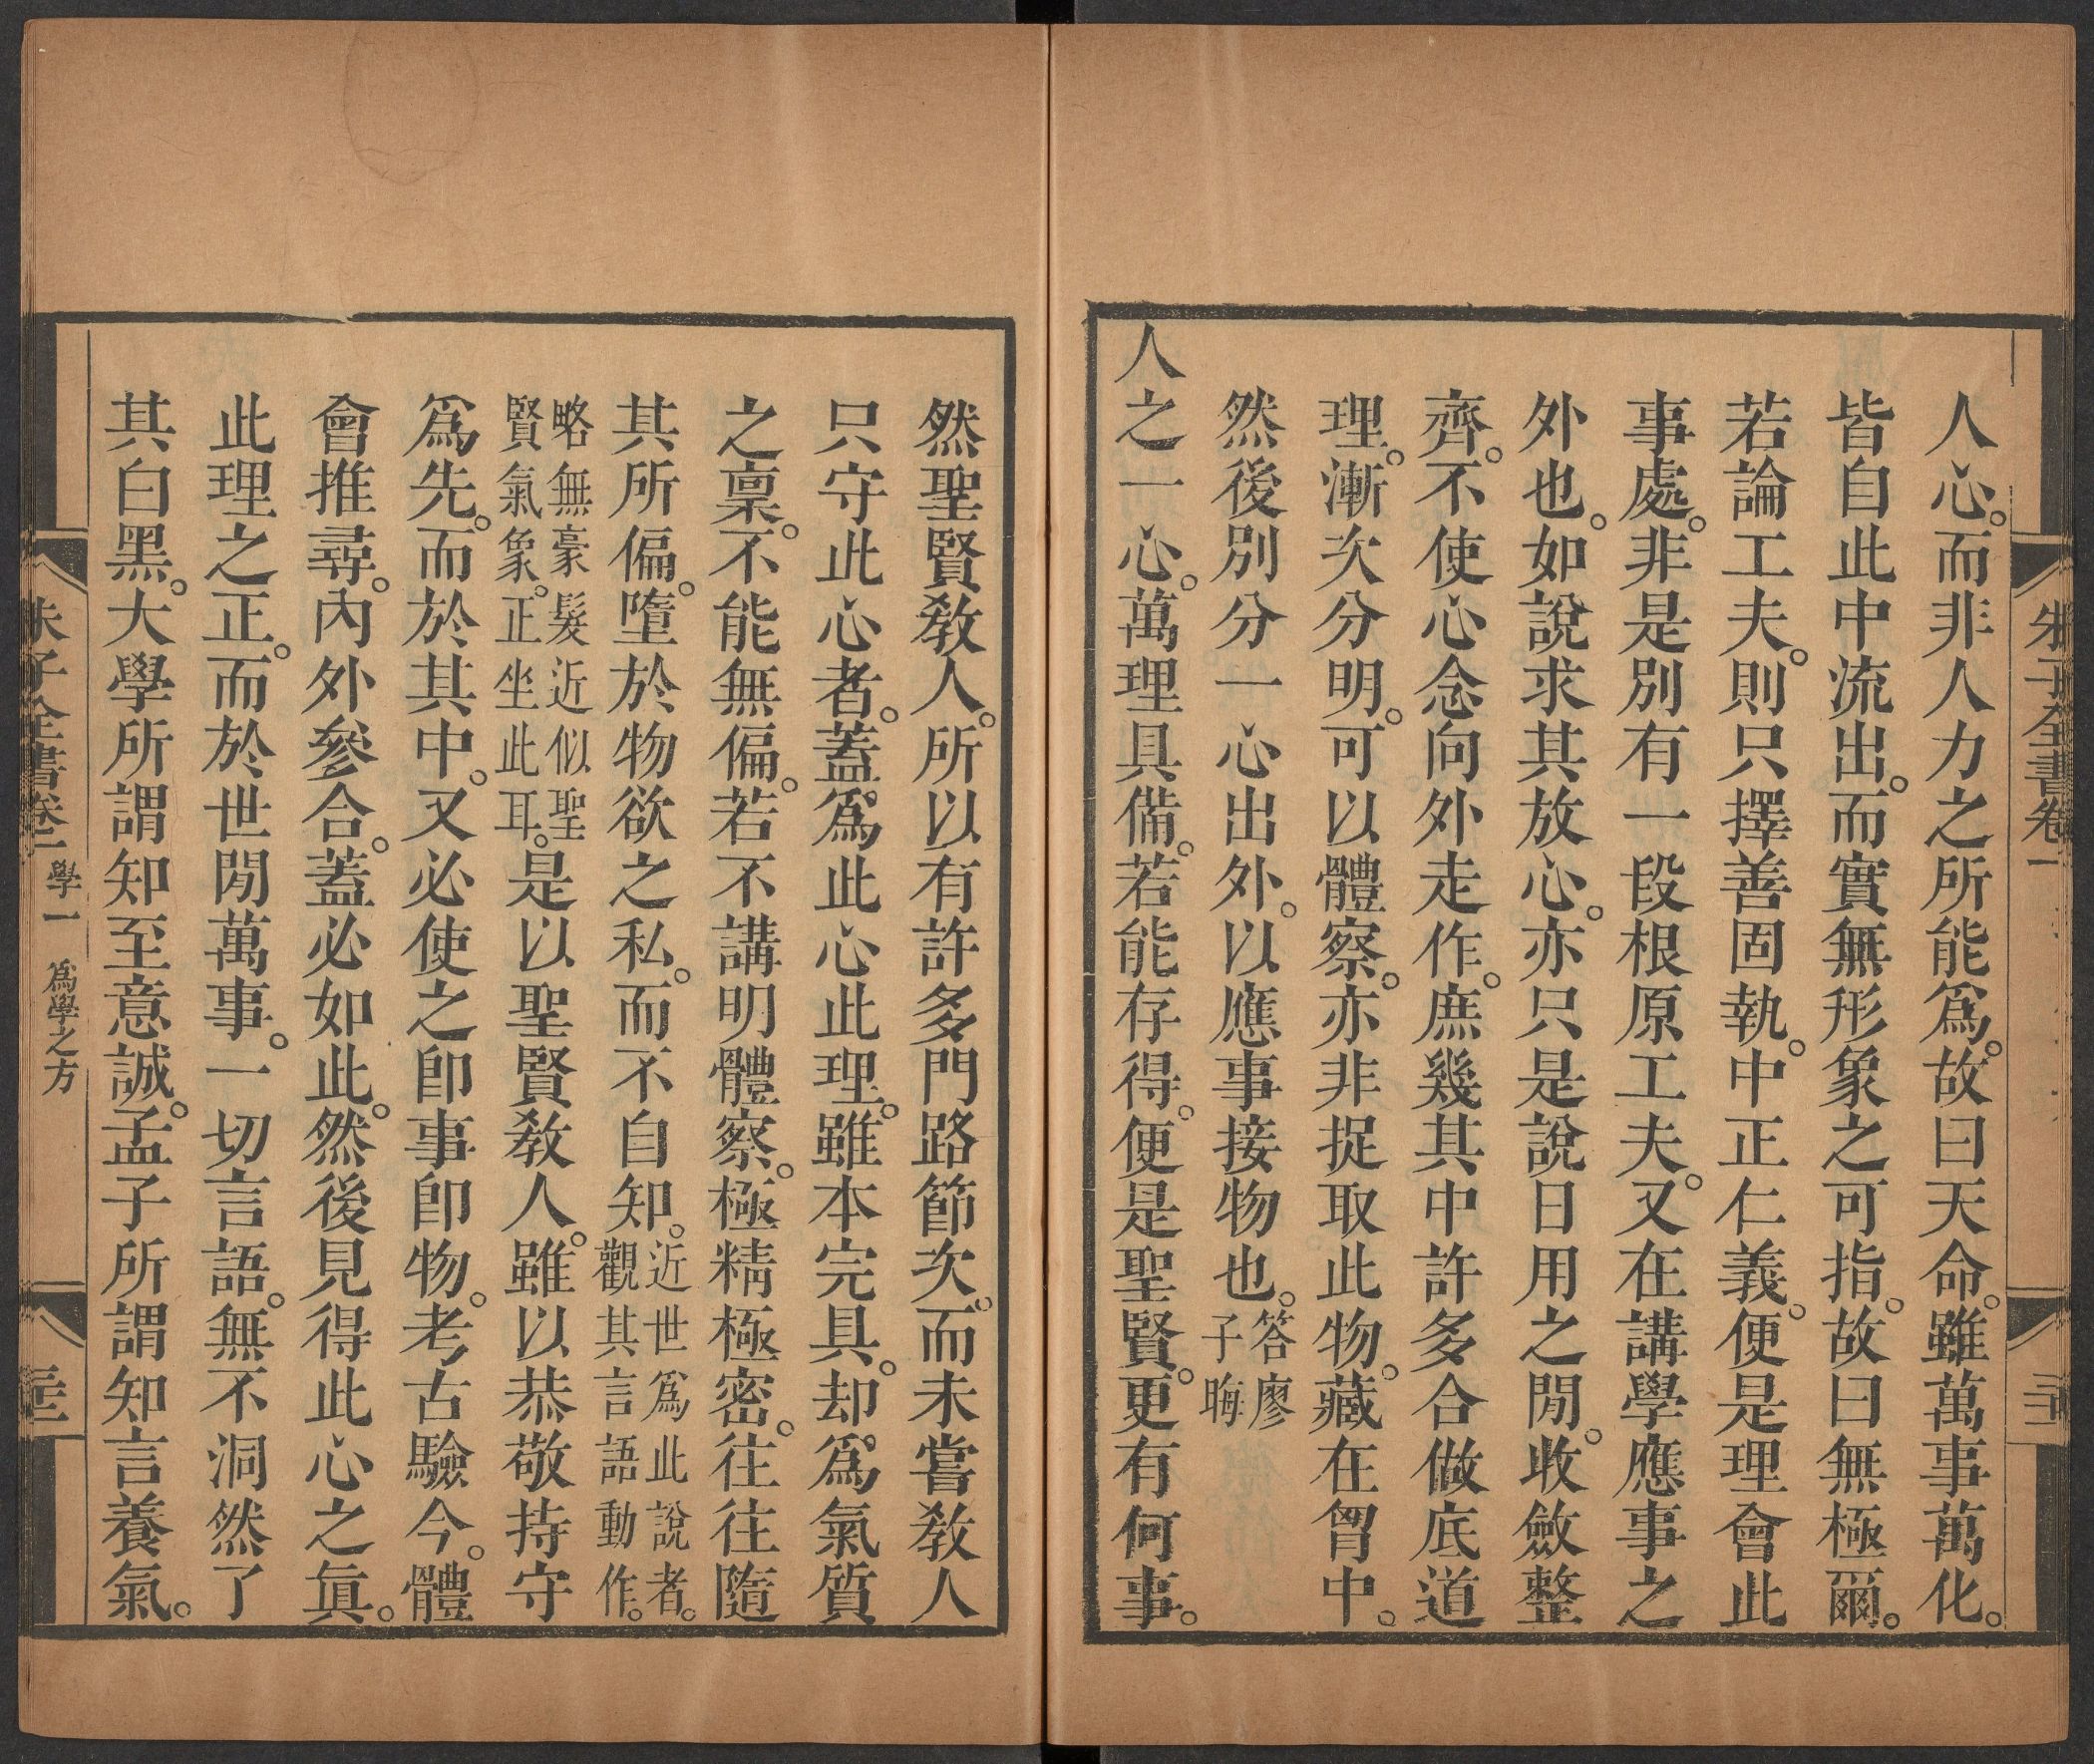 朱子全書卷一
人心。而非人力之所能爲。故曰天命。雖萬事萬化。
皆自此中流出。而實無形象之可指。故曰無極爾。
若論工夫。則只擇善固執。中正仁義。便是理會此
事處。非是別有一段根原工夫。又在講學應事之
外也。如說求其放心。亦只是說日用之閒。收斂整
齊。不使心念向外走作。庶幾其中許多合做底道
理。漸次分明。可以體察。亦非捉取此物。藏在胷中。
然後別分一心出外。以應事接物也。答廖子晦
人之一心。萬理具備。若能存得。便是聖賢。更有何事。
然聖賢敎人。所以有許多門路節次。而未嘗敎人
只守此心者。蓋爲此心此理。雖本完具。却爲氣質
之稟。不能無偏。若不講明體察。極精極密。往往隨
其所偏。墮於物欲之私。而不自知。近世爲此說者。觀其言語動作。
略無豪髮近似聖賢氣象。正坐此耳。是以聖賢敎人。雖以恭敬持守
爲先。而於其中。又必使之卽事卽物。考古驗今。體
會推尋。內外參合。蓋必如此。然後見得此心之眞。
此理之正。而於世閒萬事。一切言語。無不洞然了
其白黑。大學所謂知至意誠。孟子所謂知言養氣。
朱子全書卷一 學一 爲學之方